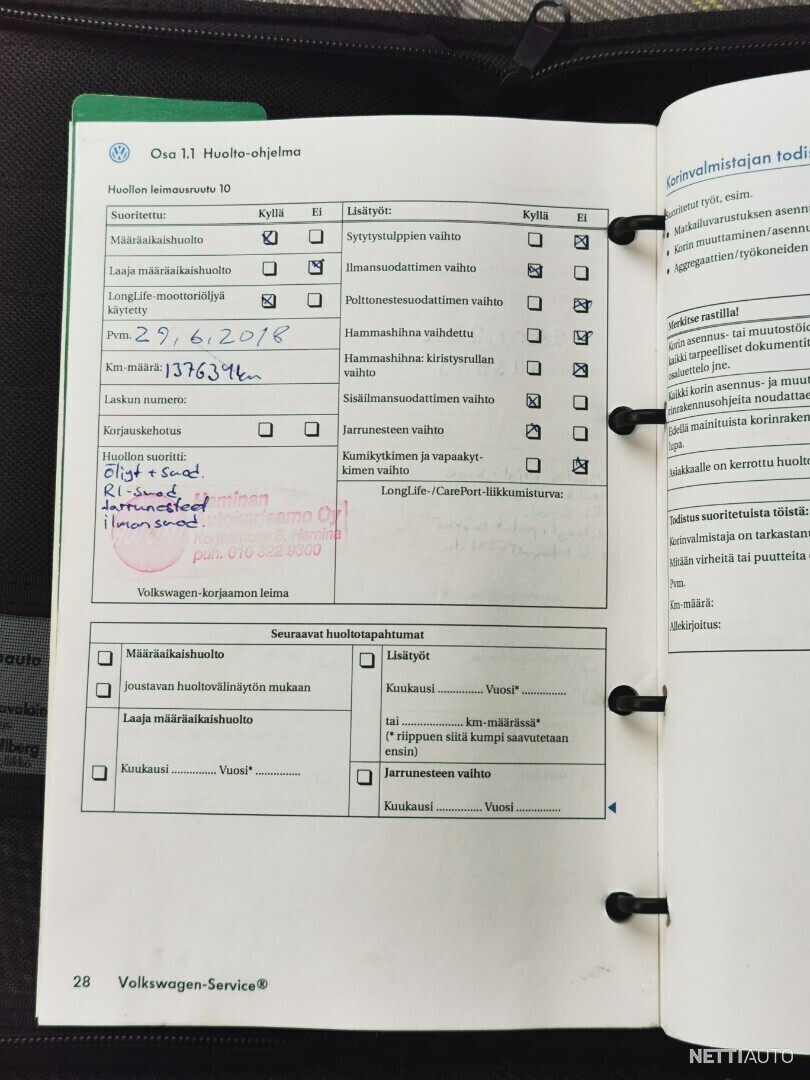 Osa 1.1 Huolto-ohjelma
Huollon leimausruutu 10
Suoritettu: Kyllä Ei
Määräaikaishuolto
Laaja määräaikaishuolto
LongLife-moottoriöljyä
käytetty
Pvm. 29.6.2018
Km-määrä: 137639km
Laskun numero:
Korjauskehotus
Huollon suoritti:
öljyt + suod.
RI-suod,
Jarrunesteet
ilmansuod.
Haminan
Autokorjaamo Oy
5, Hamina
puh. 010 322 9300
Volkswagen-korjaamon leima
Lisätyöt: Kyllä Ei
Sytytystulppien vaihto
Ilmansuodattimen vaihto
Polttonestesuodattimen vaihto
Hammashihna vaihdettu
Hammashihna: kiristysrullan
vaihto
Sisäilmansuodattimen vaihto
Jarrunesteen vaihto
Kumikytkimen ja vapaakyt-
kimen vaihto
LongLife-/CarePort-liikkumisturva:
Seuraavat huoltotapahtumat
Määräaikaishuolto
joustavan huoltovälinäytön mukaan
Laaja määräaikaishuolto
Kuukausi ............... Vuosi* ...............
Lisätyöt
Kuukausi ............... Vuosi* ...............
tai ..................... km-määrässä*
(* riippuen siitä kumpi saavutetaan
ensin)
Jarrunesteen vaihto
Kuukausi ............... Vuosi ...............
28 Volkswagen-Service®
Korinvalmistajan todis
Suoritetut työt, esim.
• Matkailuvarustuksen asennu
• Korin muuttaminen/asennu
• Aggregaattien/työkoneiden
Merkitse rastilla!
Korin asennus- tai muutostöi
kaikki tarpeelliset dokumentit
osaluettelo jne.
Kaikki korin asennus- ja muut
rinrakennusohjeita noudattae
Edellä mainituista korinraken
lupa.
Asiakkaalle on kerrottu huolto
Todistus suoritetuista töistä:
Korinvalmistaja on tarkastanu
Mitään virheitä tai puutteita
Pvm.
Km-määrä:
Allekirjoitus:
NETTIAUTO